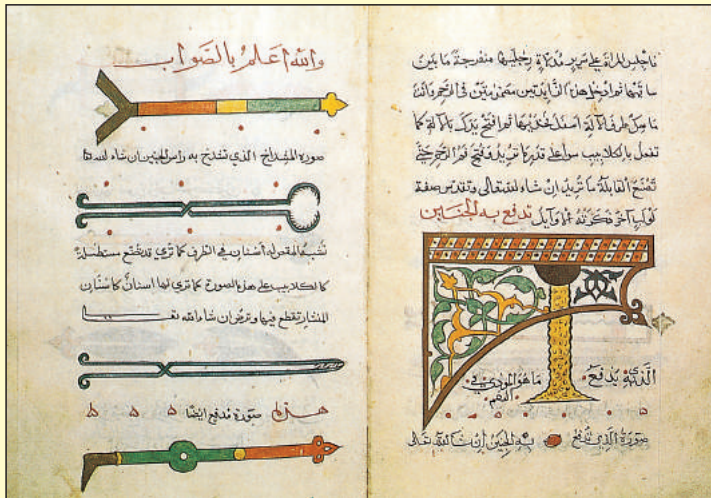 فاجلس المراة على سرير مدلاة رجليها منفرجة ما بين
ساقيها ثم ادخل هذين الزايدتين مضمومتين في الرحم وانت
ماسك طرف الآلة اسفل فخذيها ثم افتح يدك بالآلة كما
تفعل بالكلاليب سوا على قدر ما تريد وفتح فم الرحم حتى
تصنع القابلة ما تريد ان شاء الله تعالى صفة
لولب آخر ذكرته الاوايل تدفع به
الذي يدفع ما هو في
الفم
صورة الذي به الجنين ان شا الله تعالى
والله اعلم بالصواب
صورة المشداخ الذي تشدخ به راس الجنين ان شاء الله تعا
تشبه المقص له اسنان في الطرف كما تري قد تصنع مستطيلة
كالكلاليب على هذه الصورة كما تري لها اسنان كاسنان
المنشار تقطع فيها وترض ان شاء الله تعا
صورة مدفع ايضا